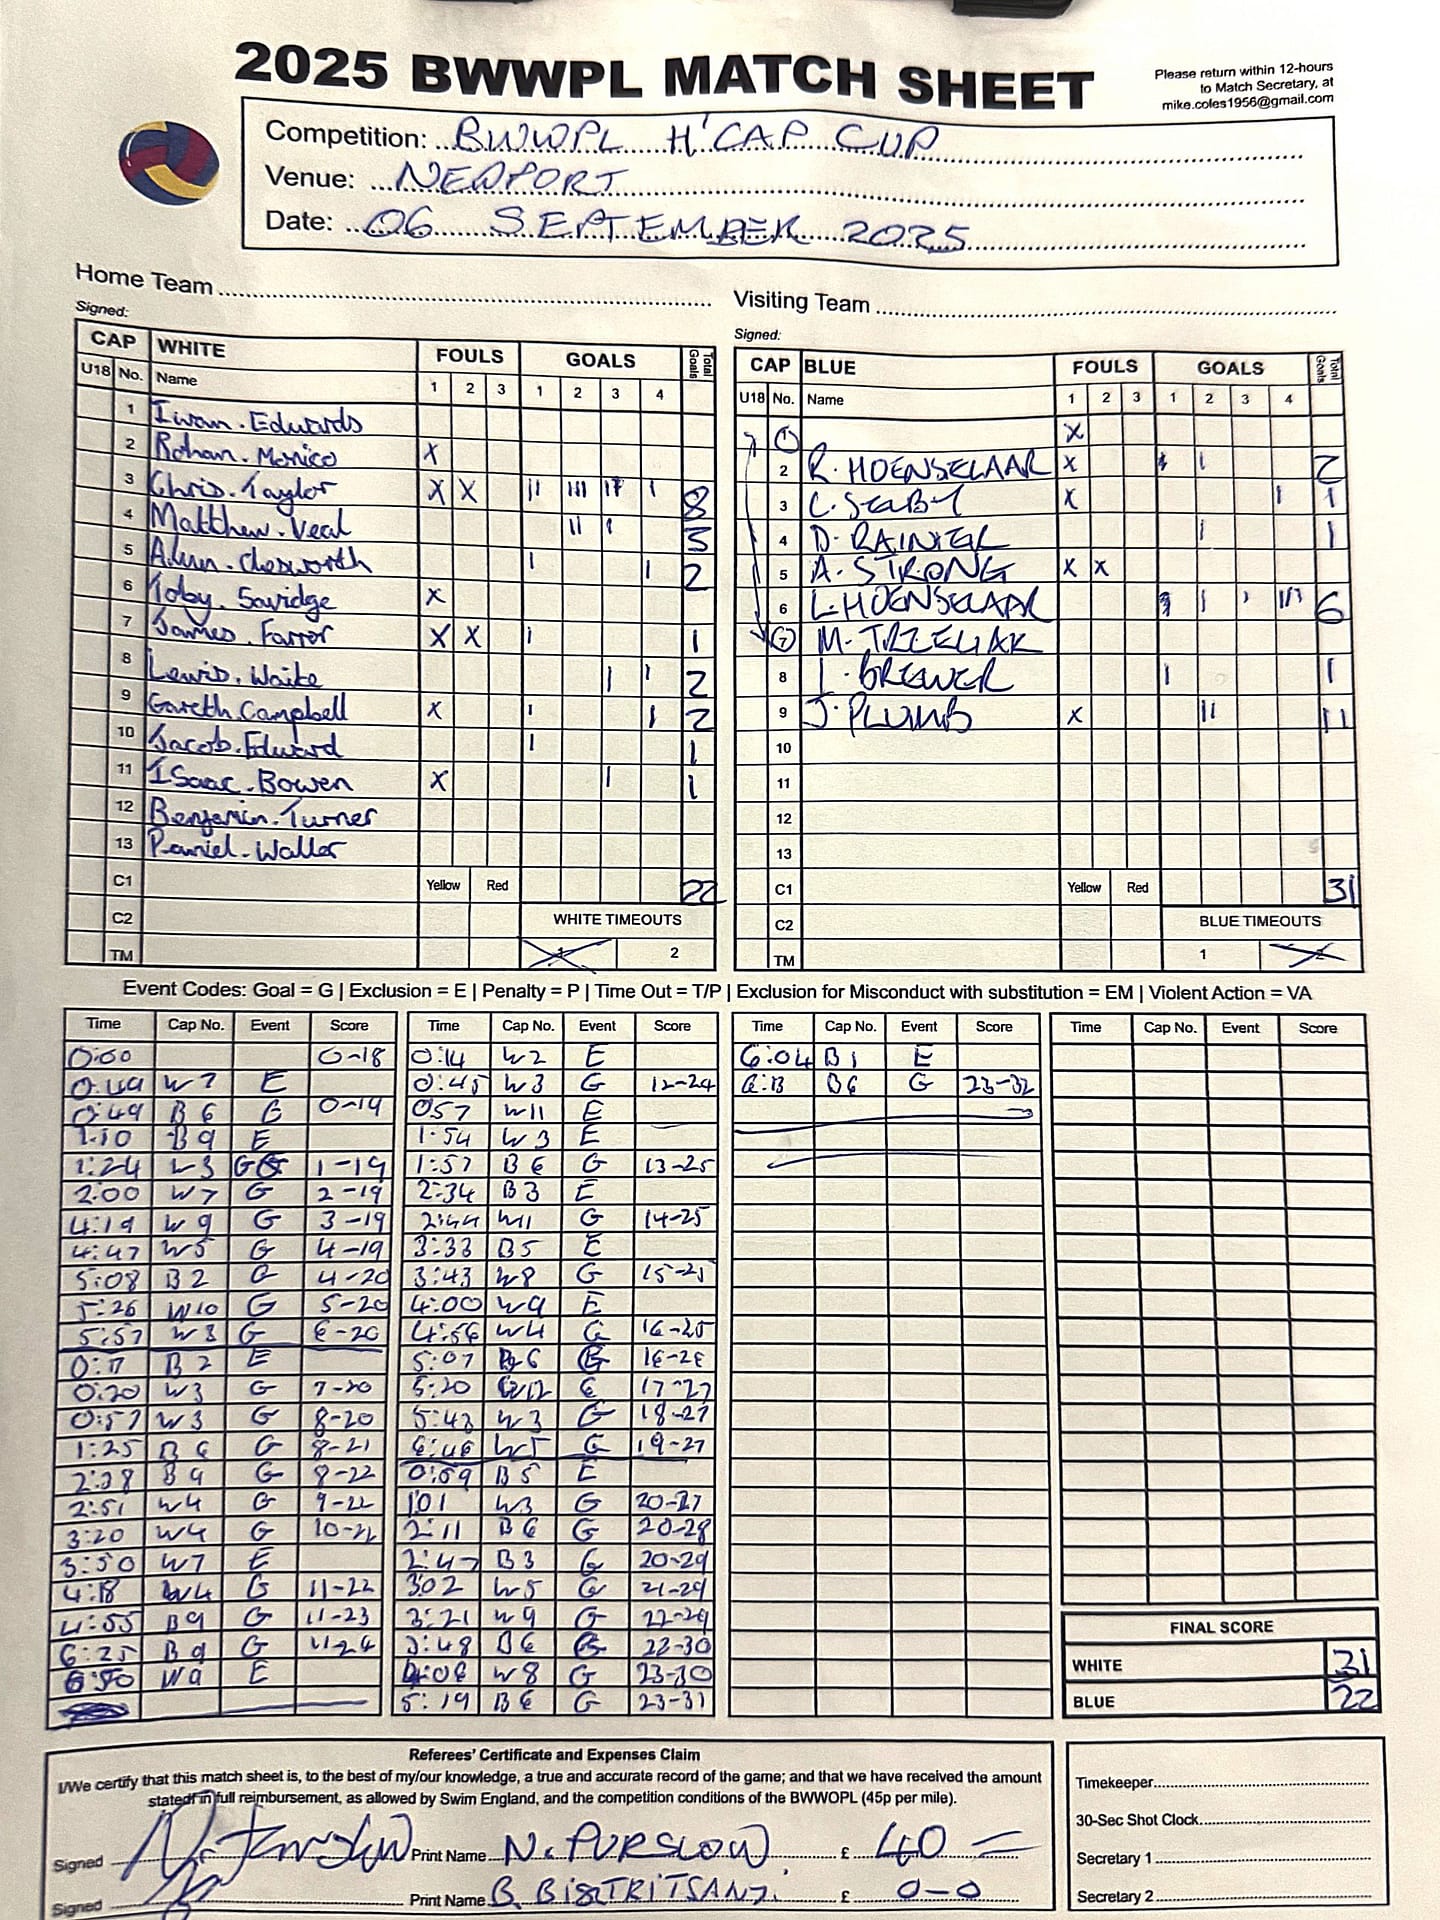 2025 BWWPL MATCH SHEET
Please return within 12-hours
to Match Secretary, at
mike.coles1956@gmail.com
Competition: BWWPL H'CAP CUP
Venue: NEWPORT
Date: 06 SEPTEMBER 2025
Home Team
Signed:
CAP WHITE FOULS GOALS Total Goals
U18 No. Name 1 2 3 1 2 3 4
1 Iwan. Edwards
2 Rohan. Monico X
3 Chris. Taylor X X 8
4 Matthew. Veal
5 Alun. Chesworth 2
6 Toby. Savidge X
7 James. Farror X X 1
8 Lewis. Waite 2
9 Gareth. Campbell X 2
10 Jacob. Edward 1
11 Isaac. Bowen X 1
12 Benjamin. Turner
13 Daniel. Waller
C1 Yellow Red 22
C2 WHITE TIMEOUTS
TM 1 2
Visiting Team
Signed:
CAP BLUE FOULS GOALS Total Goals
U18 No. Name 1 2 3 1 2 3 4
1 X
2 R. HOENSELAAR X 2
3 X 1
4 D. RAINIER 1
5 A. STRONG X X
6 L. HOENSELAAR 6
7
8 I. BREWER 1
9 J. PLUMB X 11
10
11
12
13
C1 Yellow Red 31
C2 BLUE TIMEOUTS
TM 1 2
Event Codes: Goal = G | Exclusion = E | Penalty = P | Time Out = T/P | Exclusion for Misconduct with substitution = EM | Violent Action = VA
Time Cap No. Event Score
0:00 0-18
0:49 W7 E
0:49 B6 G 0-19
1:10 B9 E
1:24 W3 G 1-19
2:00 W7 G 2-19
4:19 W9 G 3-19
4:47 W5 G 4-19
5:08 B2 G 4-20
5:26 W10 G 5-20
5:57 W3 G 6-20
0:17 B2 E
0:20 W3 G 7-20
0:57 W3 G 8-20
1:25 B6 G 8-21
2:28 B9 G 8-22
2:51 W4 G 9-22
3:20 W4 G 10-22
3:50 W7 E
4:18 W4 G 11-22
4:55 B9 G 11-23
6:25 B9 G 11-24
6:50 W9 E
Time Cap No. Event Score
0:14 W2 E
0:45 W3 G 12-24
0:57 W11 E
1:54 W3 E
1:57 B6 G 13-25
2:34 B3 E
2:44 W11 G 14-25
3:33 B5 E
3:43 W8 G 15-25
4:00 W9 E
4:56 W4 G 16-25
5:07 B6 G 16-26
5:20 17-27
5:43 W3 G 18-27
6:46 W5 G 19-27
0:59 B5 E
1:01 W3 G 20-27
2:11 B6 G 20-28
2:47 B3 G 20-29
3:02 W5 G 21-29
3:21 W9 G 22-29
3:48 B6 G 22-30
4:06 W8 G 23-30
5:19 B6 G 23-31
Time Cap No. Event Score
6:04 B1 E
6:13 B6 G 23-32
Time Cap No. Event Score
FINAL SCORE
WHITE 31
BLUE 22
Referees' Certificate and Expenses Claim
I/We certify that this match sheet is, to the best of my/our knowledge, a true and accurate record of the game; and that we have received the amount
stated in full reimbursement, as allowed by Swim England, and the competition conditions of the BWWOPL (45p per mile).
Signed Print Name N. PURSLOW £ 40 =
Signed Print Name B. £ 0-0
Timekeeper
30-Sec Shot Clock
Secretary 1
Secretary 2